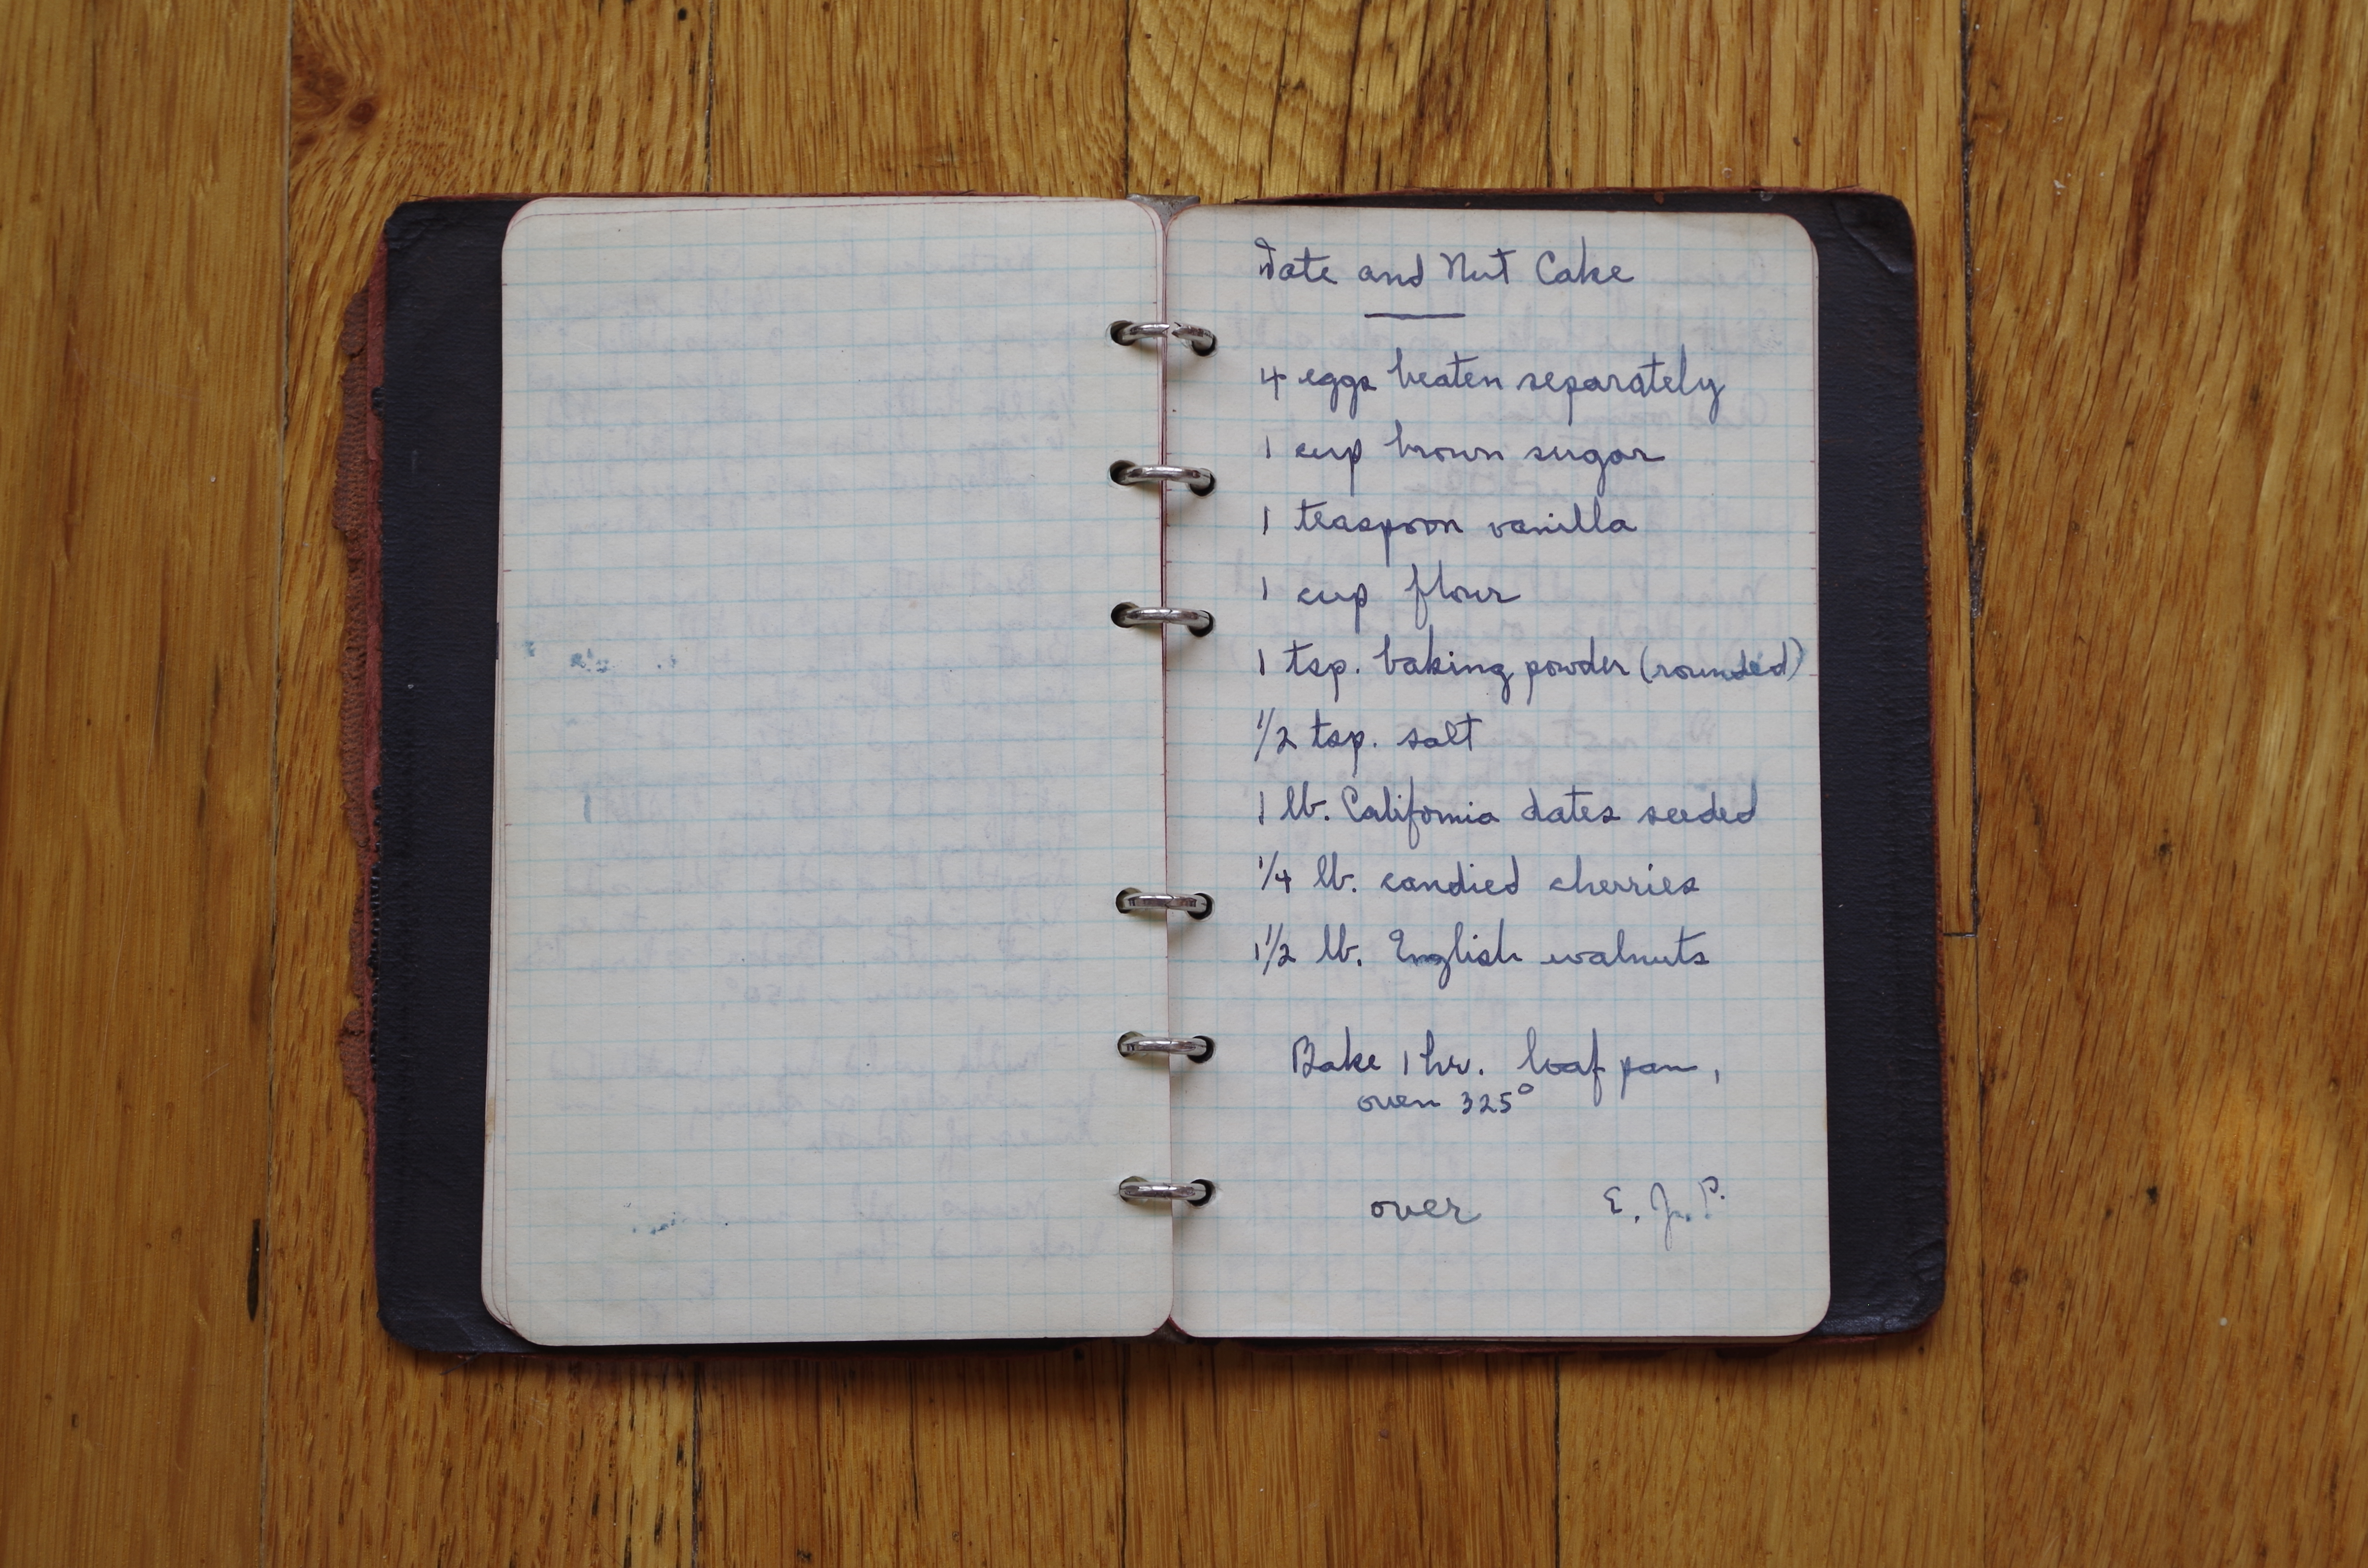 Date and Nut Cake
4 eggs beaten separately
1 cup brown sugar
1 teaspoon vanilla
1 cup flour
1 tsp. baking powder (rounded)
1/2 tsp. salt
1 lb. California dates seeded
1/4 lb. candied cherries
1 1/2 lb. English walnuts
Bake 1 hr. loaf pan,
oven 325°
over E. J. P.